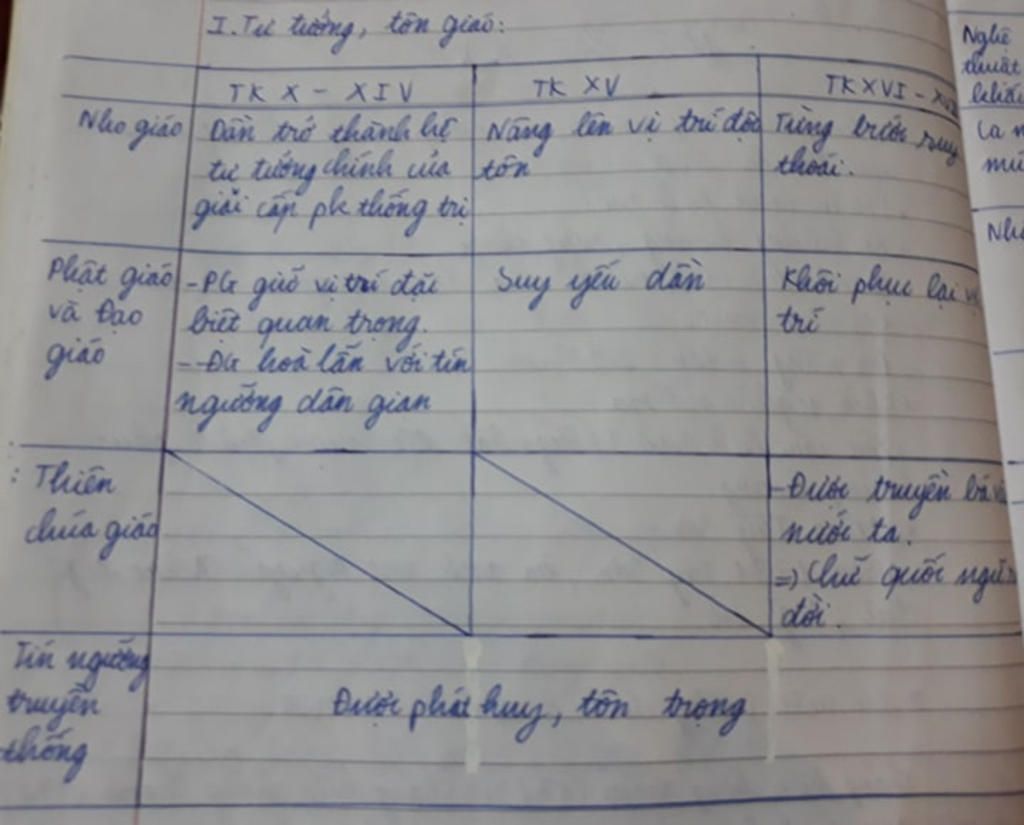 I. Tư tưởng, tôn giáo:
TK X - XIV
TK XV
TK XVI -
Nho giáo
Dần trở thành hệ
tư tưởng chính của
giai cấp pk thống trị
Nâng lên vị trí độc
tôn
Từng bước suy
thoái.
Phật giáo
và Đạo
giáo
- PG giữ vị trí đặc
biệt quan trọng.
- ĐG hoà lẫn với tín
ngưỡng dân gian
Suy yếu dần
Khôi phục lại vị
trí
Thiên
chúa giáo
- Được truyền bá
nước ta.
=) Chữ quốc ngữ
đời.
Tín ngưỡng
truyền
thống
Được phát huy, tôn trọng
Nghệ
thuật